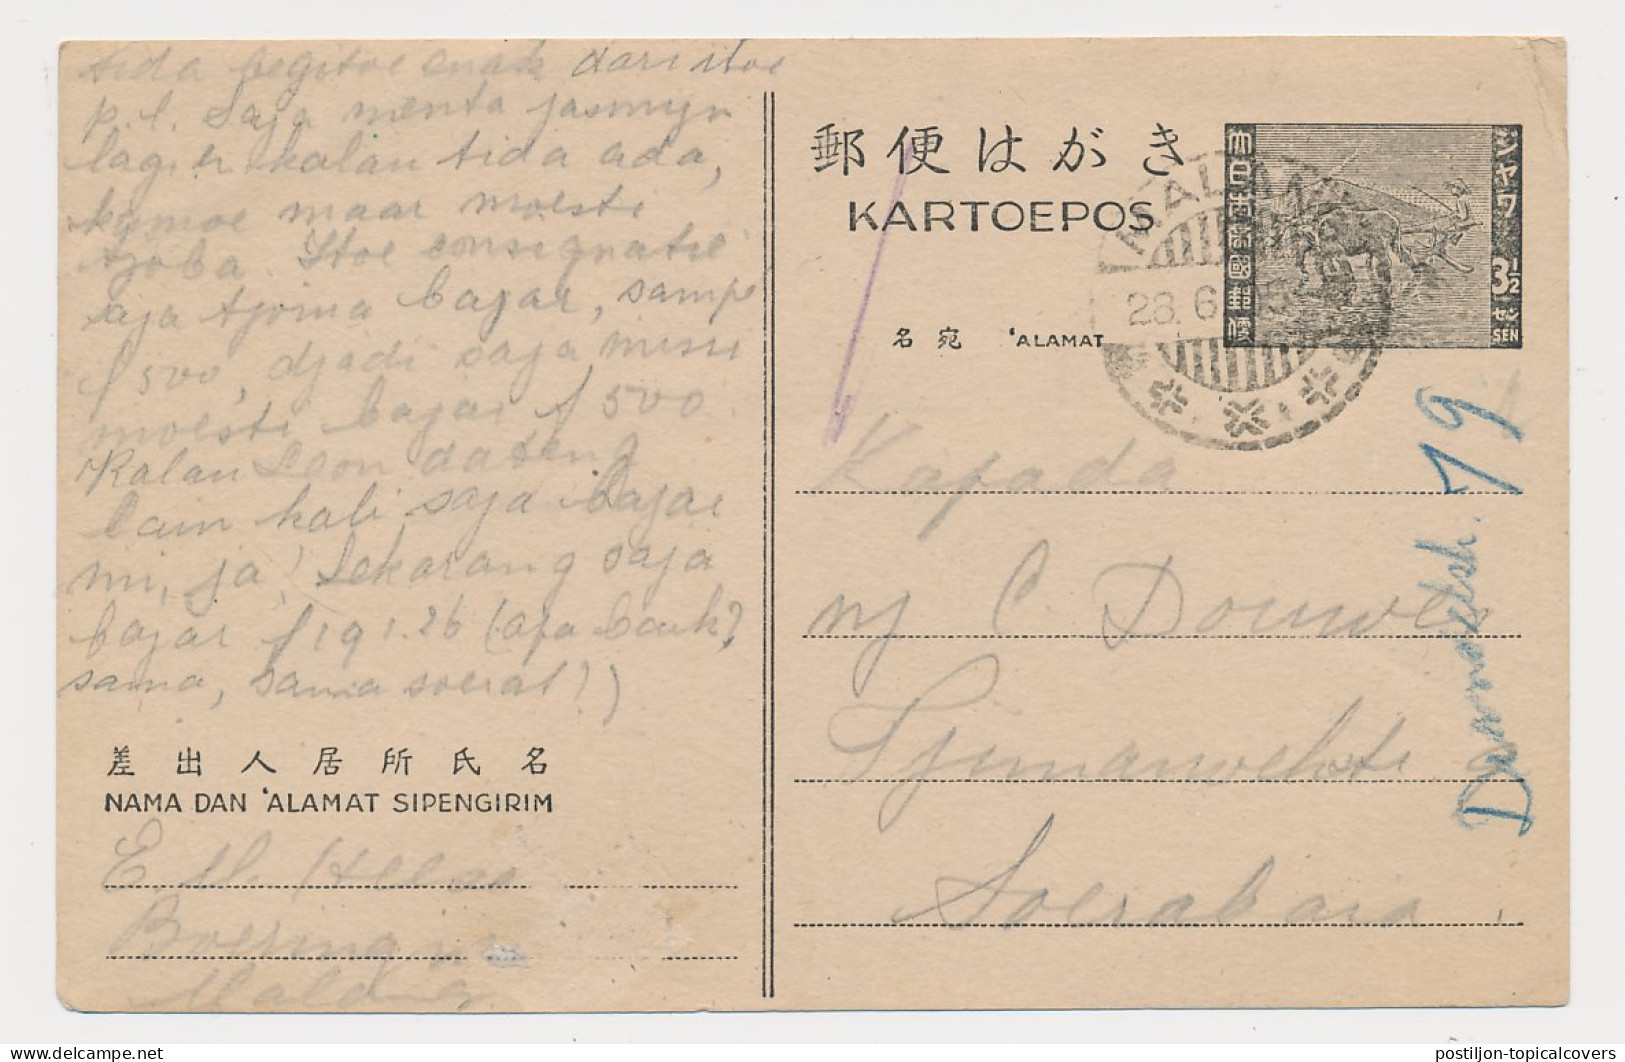 tida begitoe enak dari itoe
p.l. Saja menta jasmyn
lagi kalau tida ada,
kymoe maar moesti
tjoba. Itoe consignatie
saja tjoma bajar, sampe
f 500, djadi saja missi
moesti bajar f 500
Kalau Leon dateng
lain kali saja bajar
mi, ja! Sekarang saja
bajar f 191.26 (apa baik?
sama, sama soerat!)
差出人居所氏名
NAMA DAN 'ALAMAT SIPENGIRIM
E. d.
Boering
Malang
郵便はがき
KARTOEPOS
名宛 'ALAMAT
大日本帝國郵便
ジャワ
3½
セン
SEN
MALANG
28. 6
Kapada
nj C. Douwes
Tjimanoekstr.
Soerabaia.
79